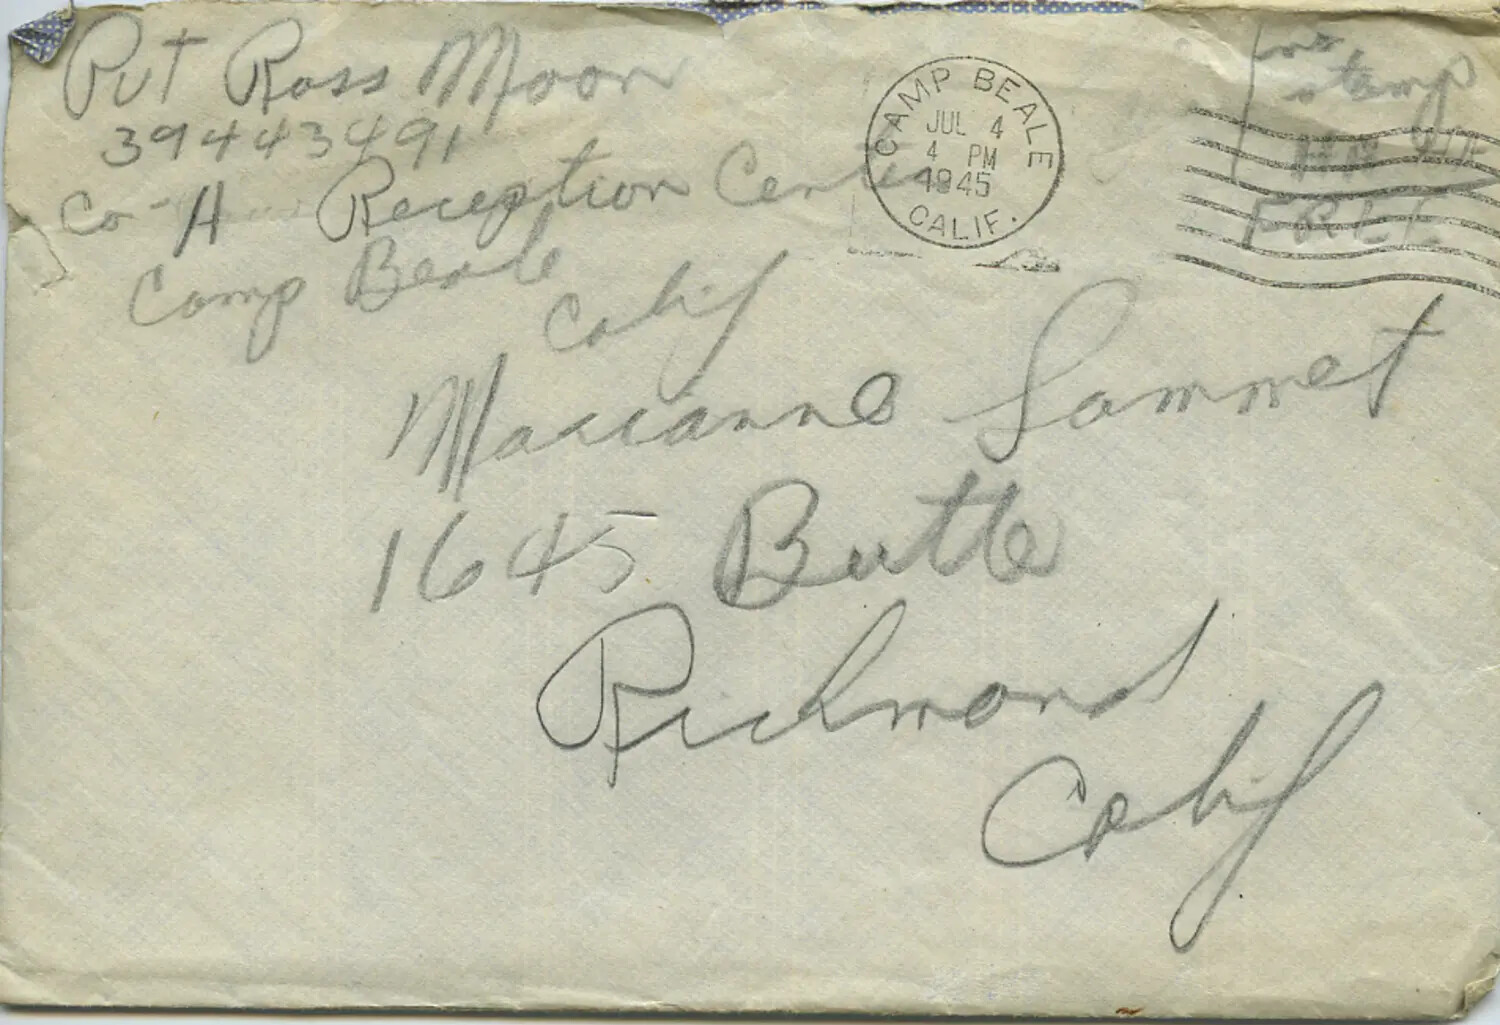 Pvt Ross Moon
39443491
Co - A Reception Center
Camp Beale
Calif
CAMP BEALE
JUL 4
4 PM
1945
CALIF.
no
stamp
FREE
Marianne Sammet
1645 Butte
Richmond
Calif